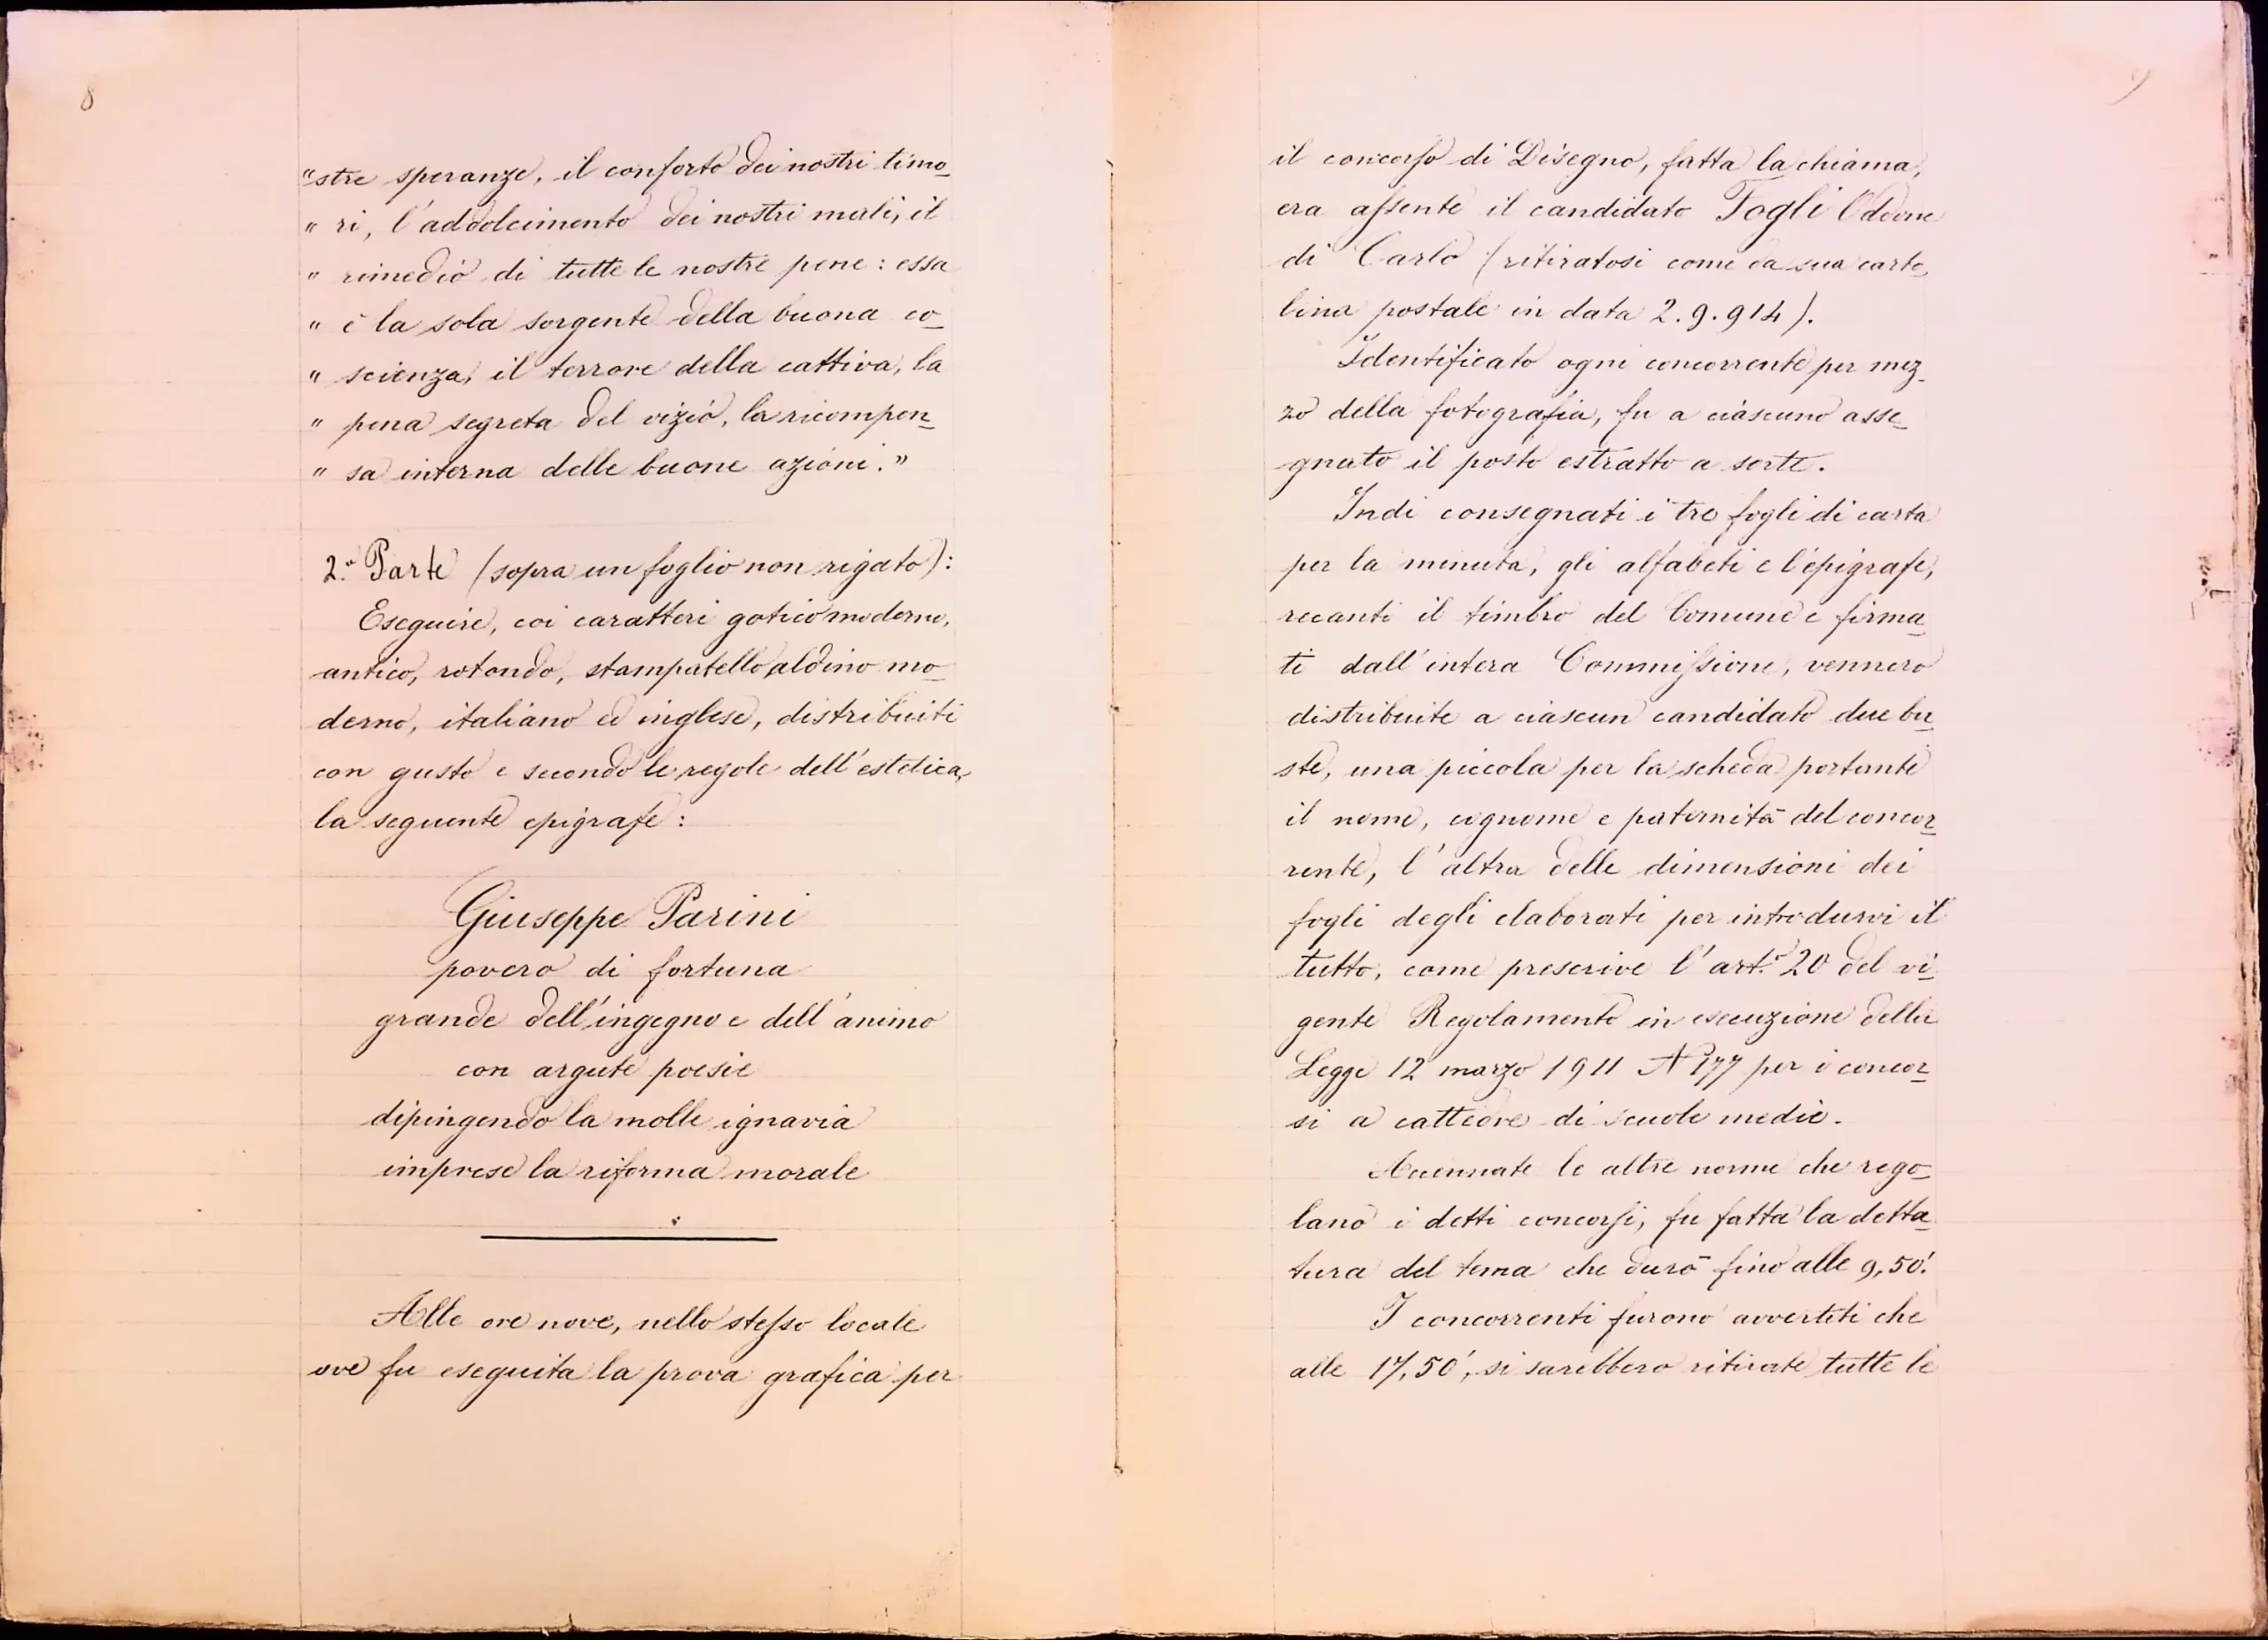 8
"stre speranze, il conforto dei nostri timo-
" ri, l'addolcimento dei nostri mali, il
" rimedio di tutte le nostre pene: essa
" è la sola sorgente della buona co-
" scienza, il terrore della cattiva, la
" pena segreta del vizio, la ricompen-
" sa interna delle buone azioni."
2.ª Parte (sopra un foglio non rigato):
Eseguire, coi caratteri gotico moderno,
antico, rotondo, stampatello, aldino mo-
derno, italiano ed inglese, distribuiti
con gusto e secondo le regole dell'estetica,
la seguente epigrafe:
Giuseppe Parini
povero di fortuna
grande dell'ingegno e dell'animo
con argute poesie
dipingendo la molle ignavia
imprese la riforma morale
Alle ore nove, nello stesso locale
ove fu eseguita la prova grafica per
9
il concorso di Disegno, fatta la chiama,
era assente il candidato Fogli Oddone
di Carlo (ritiratosi come da sua carto-
lina postale in data 2.9.914).
Identificato ogni concorrente per mez-
zo della fotografia, fu a ciascuno asse-
gnato il posto estratto a sorte.
Indi consegnati i tre fogli di carta
per la minuta, gli alfabeti e l'epigrafe,
recanti il timbro del Comune e firma-
ti dall'intera Commissione, vennero
distribuite a ciascun candidato due bu-
ste, una piccola per la scheda portante
il nome, cognome e paternità del concor-
rente, l'altra delle dimensioni dei
fogli degli elaborati per introdurvi il
tutto, come prescrive l'art.º 20 del vi-
gente Regolamento in esecuzione della
Legge 12 marzo 1911 Nº 177 per i concor-
si a cattedre di scuole medie.
Accennate le altre norme che rego-
lano i detti concorsi, fu fatta la detta-
tura del tema che durò fino alle 9,50'.
I concorrenti furono avvertiti che
alle 17,50', si sarebbero ritirate tutte le